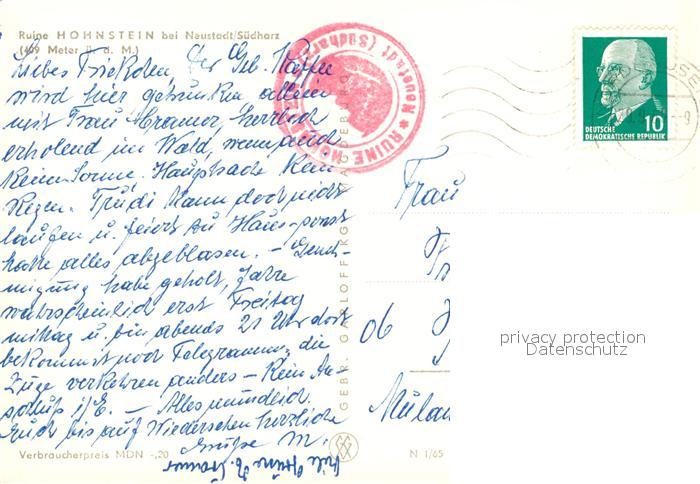 Ruine HOHNSTEIN bei Neustadt/Südharz
(409 Meter ü. d. M.)
Liebes Friedchen, der Geb. Kaffee
wird hier getrunken allein
mit Frau Cramer, herrlich
erholend im Wald, wenn auch
keine Sonne. Hauptsache kein
Regen. Trudi kann doch nicht
laufen u. feiert zu Haus - sonst
hätte alles abgeblasen. -
migung habe geholt, fahre
wahrscheinlich erst Freitag
mittag u. bin abends 21 Uhr dort
bekommst noch Telegramm, die
Züge verkehren anders - kein An-
schluß i/E. - Alles mündlich.
Euch bis auf Wiedersehen herzliche
Grüße M.
Viele Grüße
Verbraucherpreis MDN -,20
GEBR. GARLOFF KG MAGDEBURG
N 1/65
RUINE HOHNSTEIN
Neustadt (Südharz)
DEUTSCHE
DEMOKRATISCHE REPUBLIK
10
Frau
06
privacy protection
Datenschutz